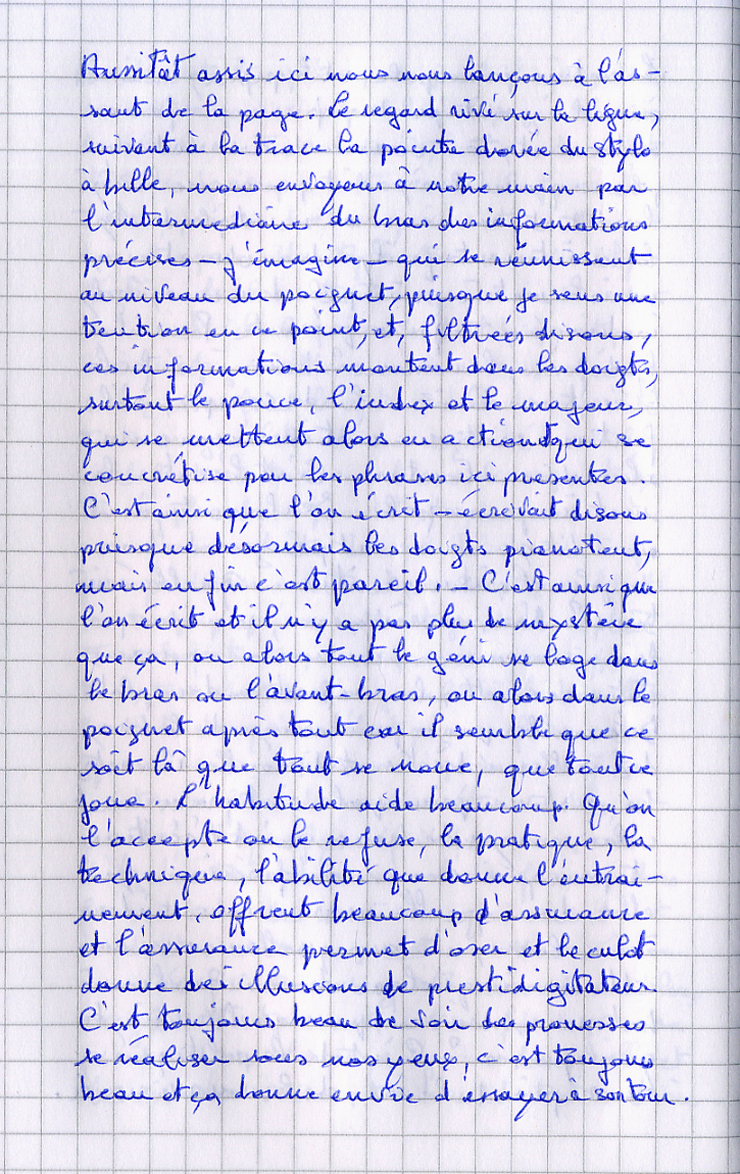 Aussitôt assis ici nous nous lançons à l'as-
saut de la page. Le regard rivé sur la ligne,
suivant à la trace la pointe dorée du stylo
à bille, nous envoyons à notre main par
l'intermediaire du bras des informations
précises – j'imagine – qui se réunissent
au niveau du poignet, puisque je sens une
tention en ce point, et, filtrées disons,
ces informations montent dans les doigts,
surtout le pouce, l'index et le majeur,
qui se mettent alors en action qui se
concrétise par les phrases ici presentes.
C'est ainsi que l'on écrit – écrivait disons
puisque désormais les doigts pianotent,
mais enfin c'est pareil. – C'est ainsi que
l'on écrit et il n'y a pas plus de mystère
que ça, ou alors tout le géni se loge dans
le bras ou l'avant-bras, ou alors dans le
poignet après tout car il semble que ce
soit là que tout se noue, que tout se
joue. L'habitude aide beaucoup. Qu'on
l'accepte ou le refuse, la pratique, la
technique, l'abilité que donne l'entrai-
nement, offrent beaucoup d'assurance
et l'assurance permet d'oser et le culot
donne des illusions de prestidigitateur.
C'est toujours beau de voir des prouesses
se réaliser sous nos yeux, c'est toujours
beau et ça donne envie d'essayer à son tour.